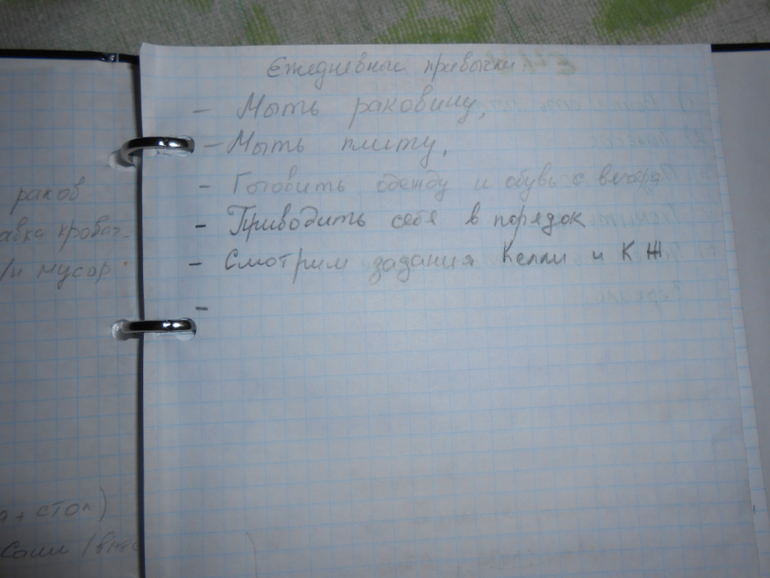 Ежедневные привычки
- Мыть раковину,
- Мыть плиту,
- Готовить одежду и обувь с вечера
- Приводить себя в порядок
- Смотрим задания Келли и КЖ
-
раков
мусор
+ стол)